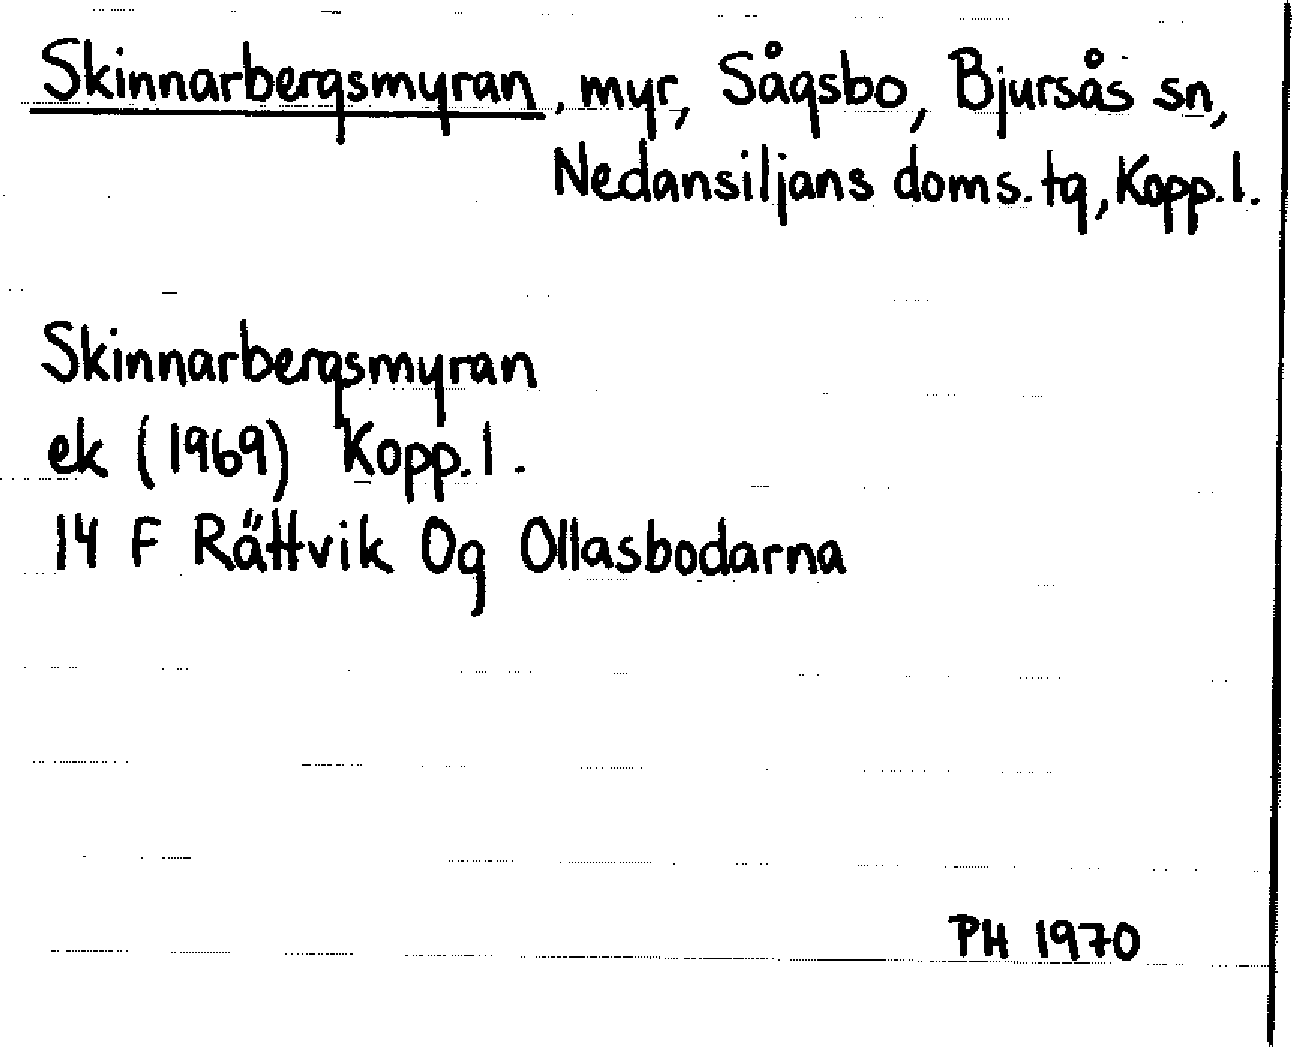 Skinnarbergsmyran, myr, Sågsbo, Bjursås sn,
Nedansiljans doms.tg, Kopp.l.
Skinnarbergsmyran
ek (1969) Kopp.l.
14 F Rättvik Og Ollasbodarna
PH 1970